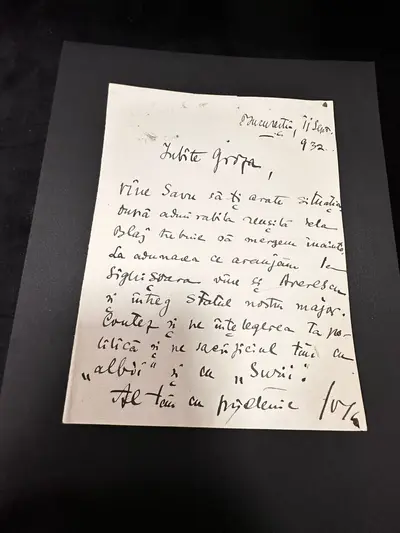 București, 11 Sept.
932
Iubite Groza,
vine Savu să ți arate situația
După admirabila reușită dela
Blaj trebuie să mergem înainte,
La adunarea ce aranjăm la
Sighișoara vine și Averescu
și întreg statul nostru major.
Contez și pe înțelegerea ta po-
litică și pe sacrificiul tău cu
„albii” și cu „Surii”.
Al tău cu prietenie